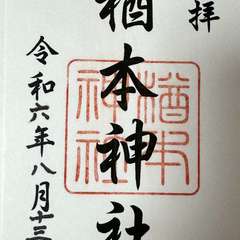 拝
楢本神社
楢本
神社
令和六年八月十三